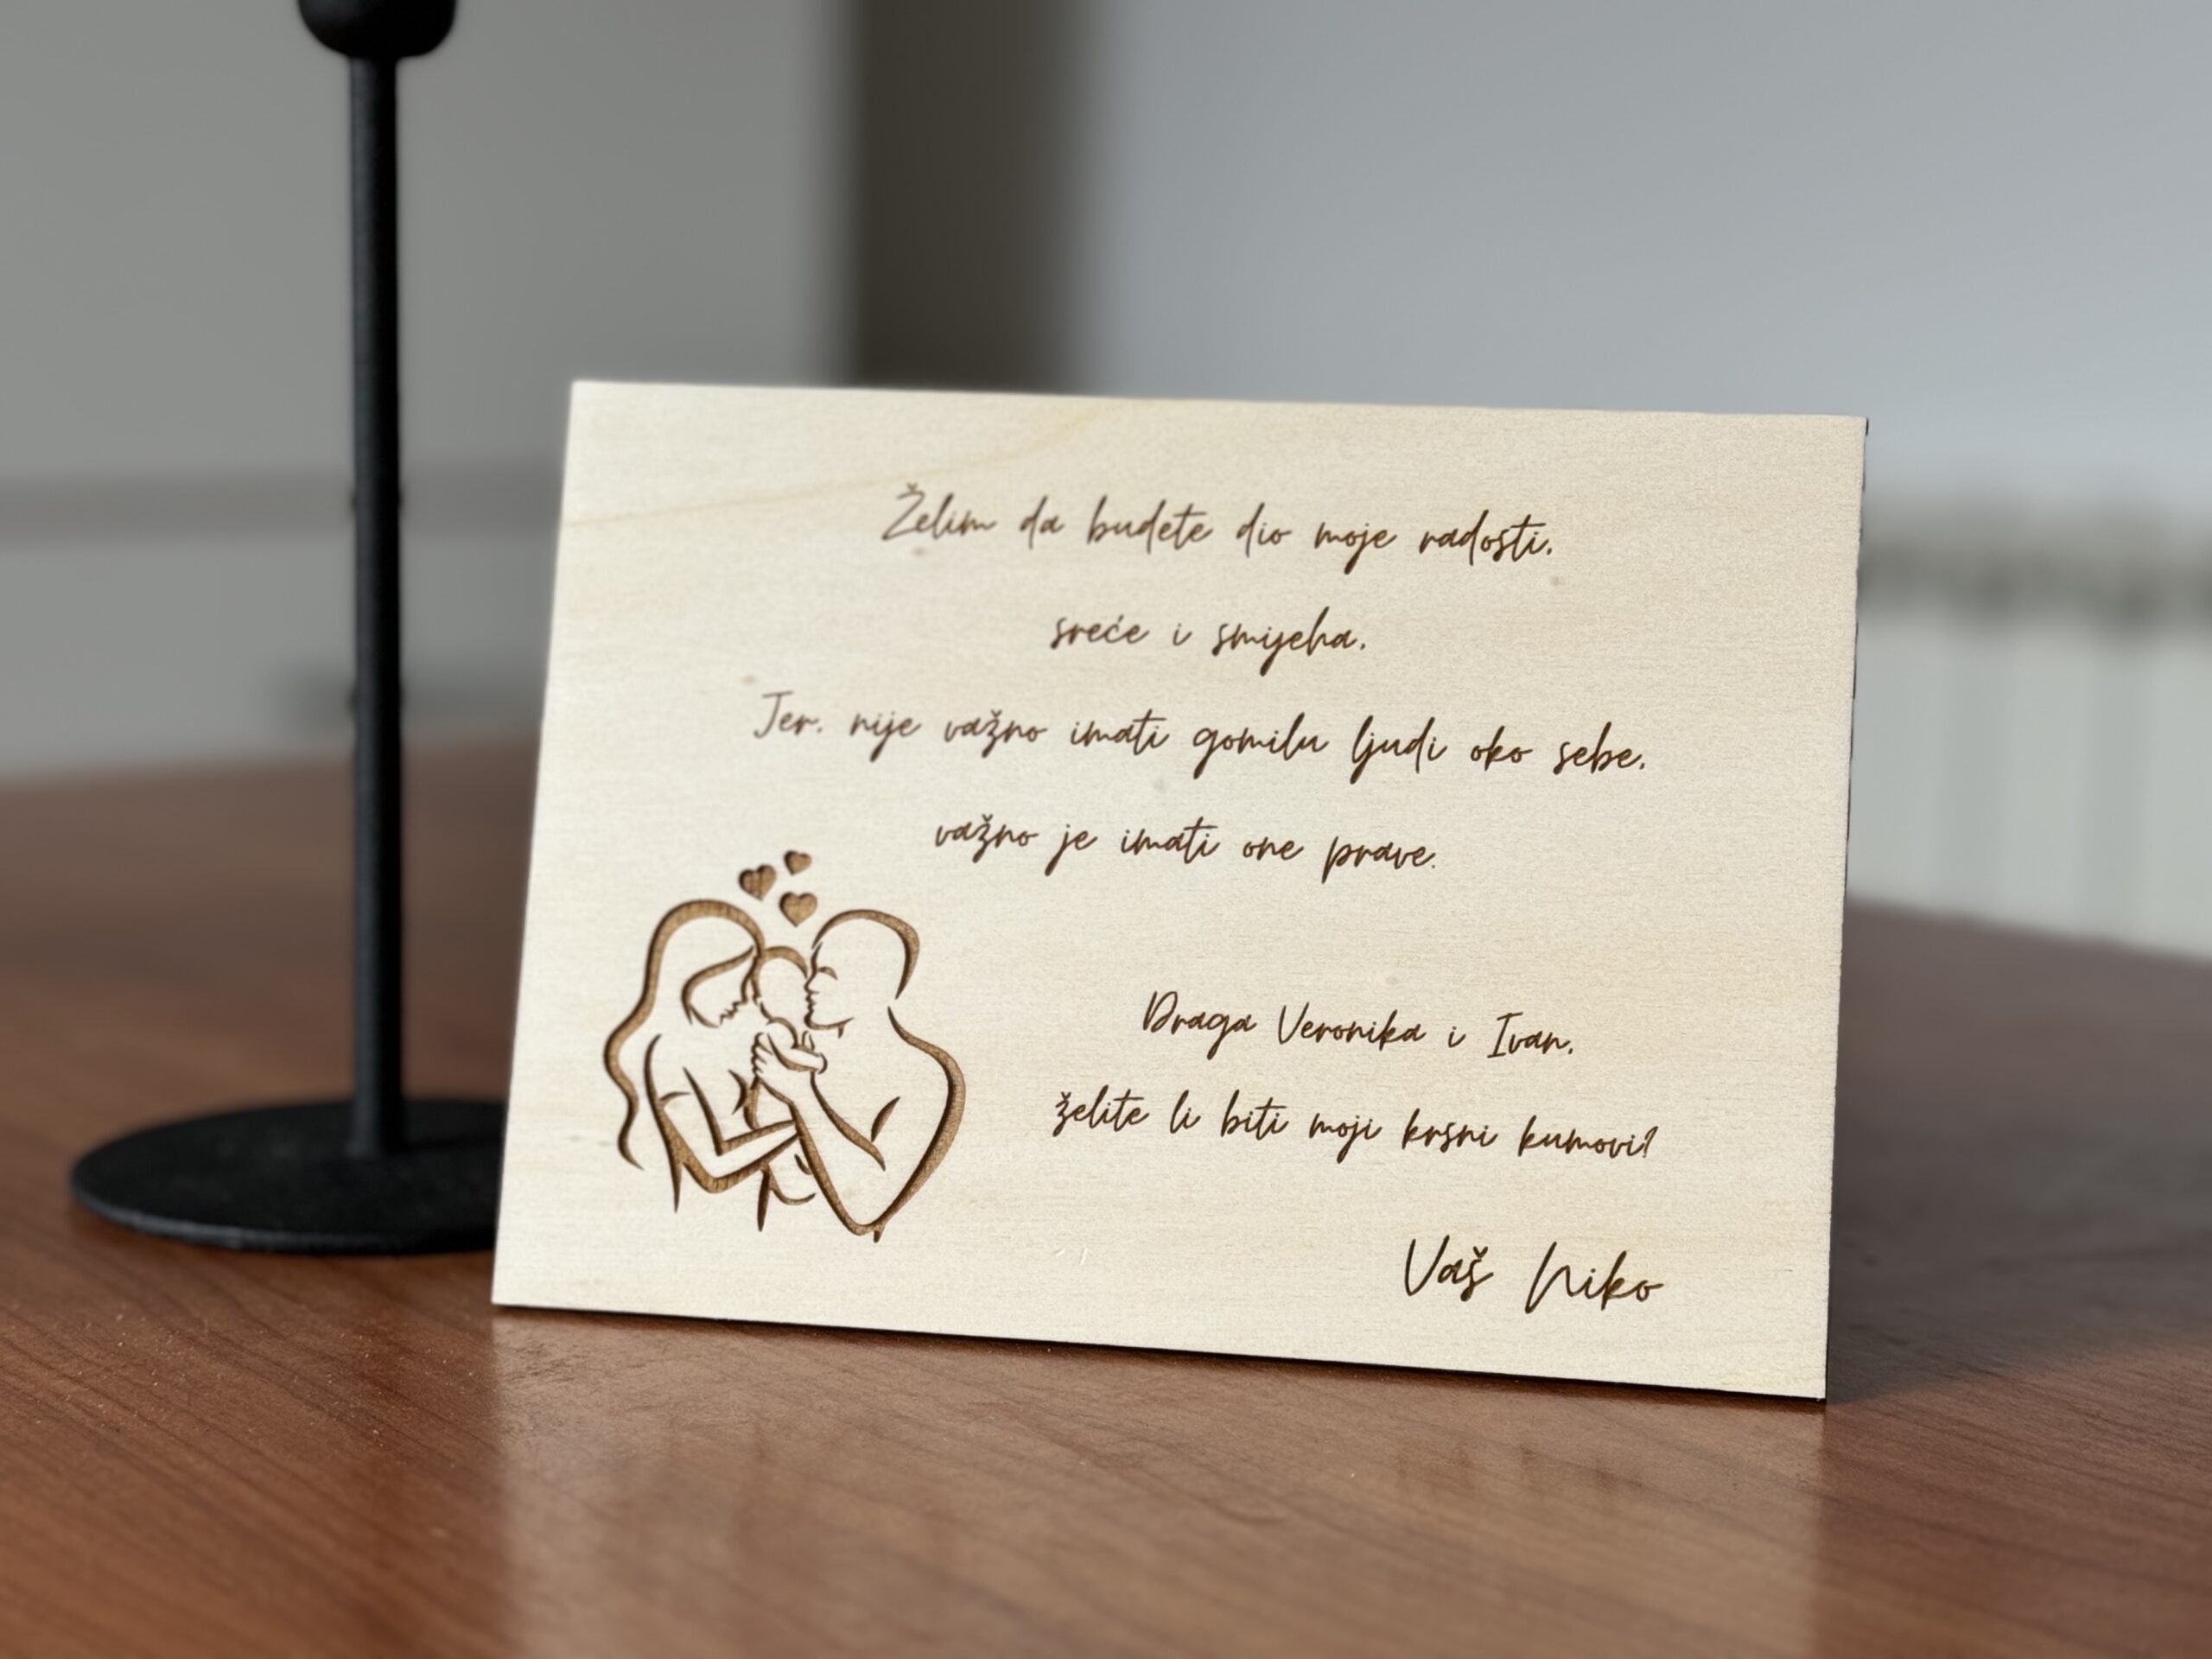 Želim da budete dio moje radosti,
sreće i smijeha.
Jer, nije važno imati gomilu ljudi oko sebe,
važno je imati one prave.
Draga Veronika i Ivan,
želite li biti moji krsni kumovi?
Vaš Niko